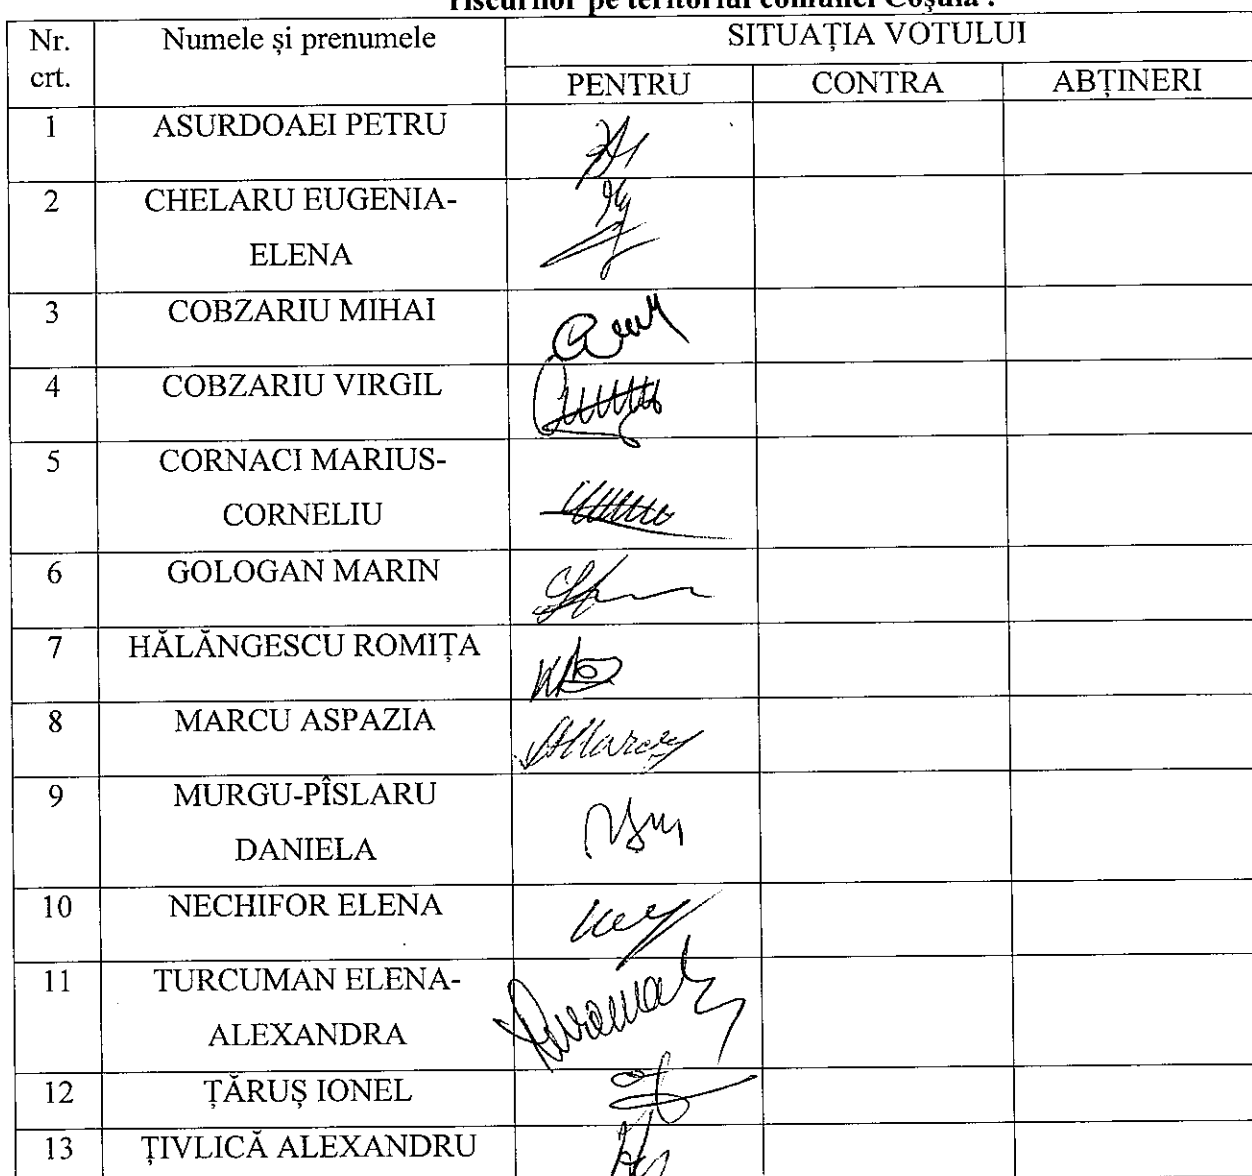 riscurilor pe teritoriul comunei Coșula .
Nr. crt. Numele și prenumele SITUAȚIA VOTULUI
PENTRU CONTRA ABȚINERI
1 ASURDOAEI PETRU
2 CHELARU EUGENIA-
ELENA
3 COBZARIU MIHAI
4 COBZARIU VIRGIL
5 CORNACI MARIUS-
CORNELIU
6 GOLOGAN MARIN
7 HĂLĂNGESCU ROMIȚA
8 MARCU ASPAZIA
9 MURGU-PÎSLARU
DANIELA
10 NECHIFOR ELENA
11 TURCUMAN ELENA-
ALEXANDRA
12 ȚĂRUȘ IONEL
13 ȚIVLICĂ ALEXANDRU